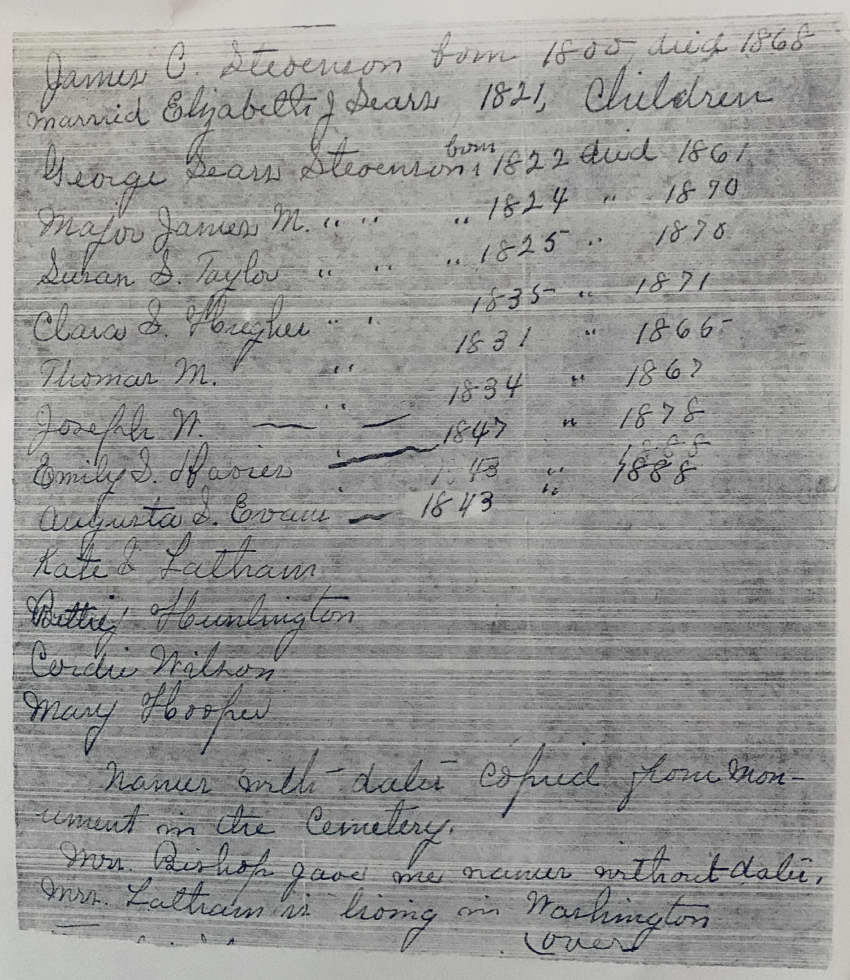 James C. Stevenson born 1800, died 1868
married Elizabeth J Sears 1821, Children
George Sears Stevenson, born 1822 died 1861
Major James M. " " " 1824 " 1870
Susan S. Taylor " " " 1825 " 1870
Clara S. Hughes " " 1835 " 1871
Thomas M. " 1831 " 1866
Joseph W. " 1834 " 1867
Emily S. Davies 1847 " 1878
Augusta S. Evans 1843 " 1888
Kate S Latham
Bettie Huntington
Cordie Wilson
Mary Hooper
Names with dates copied from Mon-
ument in the Cemetery.
Mrs. Bishop gave me names without dates.
Mrs. Latham is living in Washington
(over)